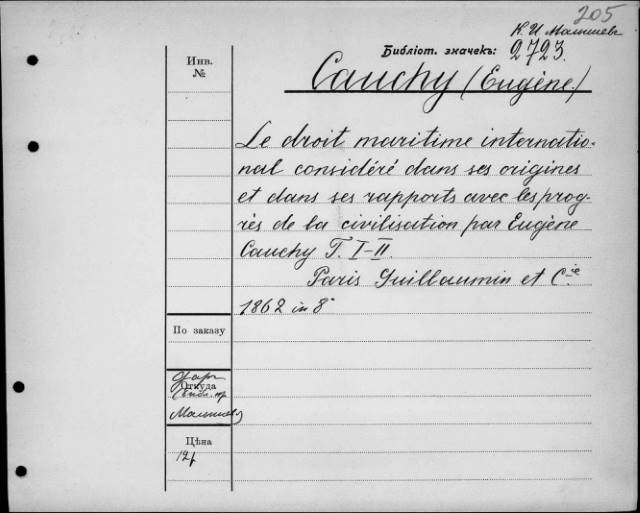 205
К. И. Малышев
Библіот. значекъ: 2723.
Инв.
№
Cauchy (Eugène)
Le droit maritime internatio-
nal considéré dans ses origines
et dans ses rapports avec les prog-
rès de la civilisation par Eugène
Cauchy T. I-II.
Paris Guillaumin et C.ie
1862 in 8°
По заказу
Откуда
Малышев
Цѣна
12f